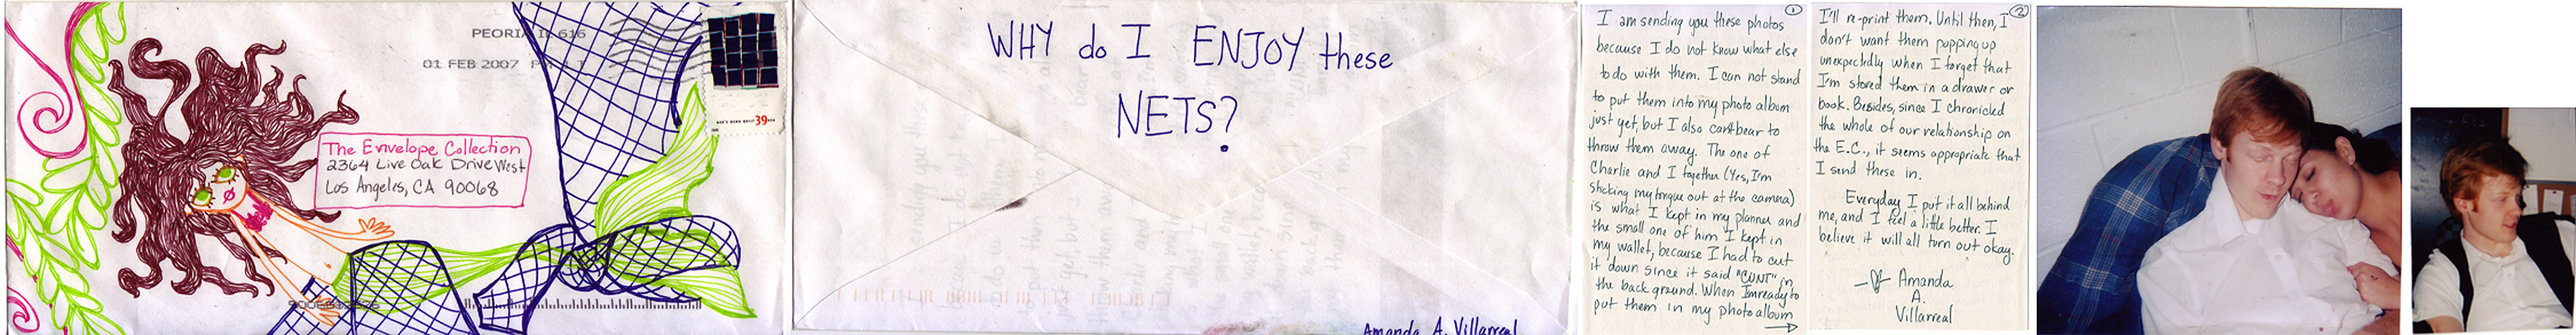 PEORIA IL 616
01 FEB 2007
39
The Envelope Collection
2364 Live Oak Drive West
Los Angeles, CA 90068
WHY do I ENJOY these
NETS?
Amanda A. Villarreal
1
I am sending you these photos
because I do not know what else
to do with them. I can not stand
to put them into my photo album
just yet, but I also can't bear to
throw them away. The one of
Charlie and I together (Yes, I'm
sticking my tongue out at the camera)
is what I kept in my planner and
the small one of him I kept in
my wallet, because I had to cut
it down since it said "CUNT" in
the back ground. When I'm ready to
put them in my photo album
2
I'll re-print them. Until then, I
don't want them popping up
unexpectedly when I forget that
I'm stored them in a drawer or
book. Besides, since I chronicled
the whole of our relationship on
the E.C., it seems appropriate that
I send these in.
Everyday I put it all behind
me, and I feel a little better. I
believe it will all turn out okay.
Amanda
A.
Villarreal